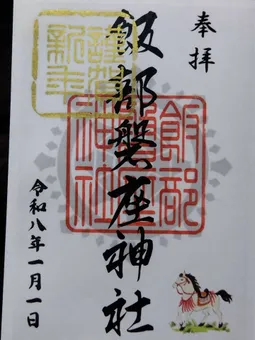 奉拝
飯部磐座神社
謹賀
新年
飯部磐座
神社
令和八年一月一日